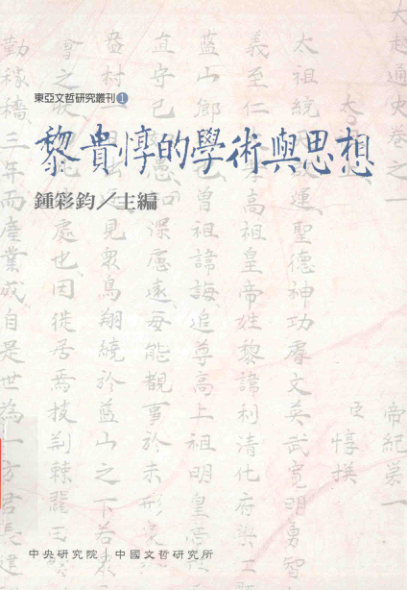 東亞文哲研究叢刊 1
黎貴惇的學術與思想
鍾彩鈞／主編
大越通史卷之一
帝紀第一
惇撰
太祖統 運聖德神功睿文英武寬明勇智
義至仁 高祖皇帝姓黎諱利清化府
藍山鄉 曾祖諱誨追尊高上祖明皇
直守己 深慮遠每能覩事於未形
村一 見眾鳥翔繞於藍山之下若
會之 處也因徙居焉技荊棘
勤稼穡三年而產業成自是世為一方君長
中央研究院 中國文哲研究所